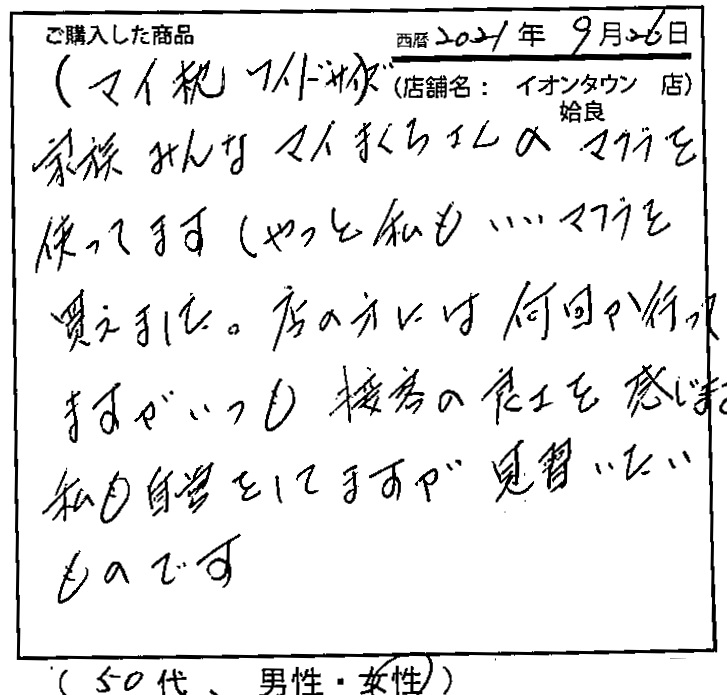 ご購入した商品
西暦 2021 年 9月26日
(マイ枕 ワイドサイズ)
(店舗名： イオンタウン 店)
姶良
家族 みんな マイまくらさんの マクラを
使ってます しやっと 私も いいマクラを
買えました。店の方には 何回か行って
ますがいつも 接客の良さを 感じます
私も自営をしてますが 見習いたい
ものです
(50代、 男性・女性)